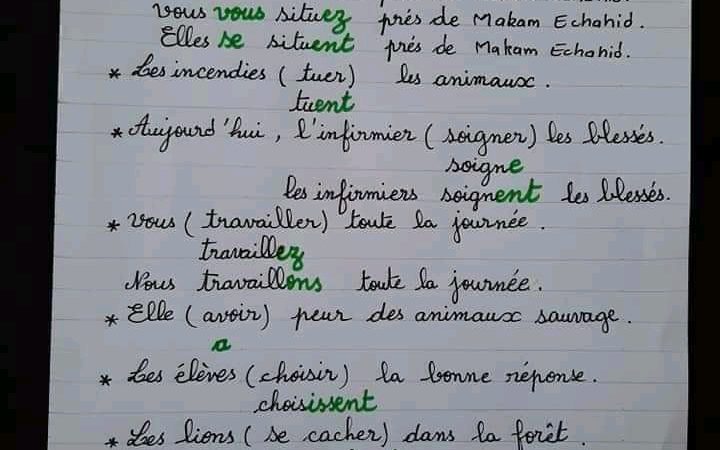 vous vous situez prés de Makam Echahid.
Elles se situent prés de Makam Echahid.
* Les incendies ( tuer) les animaux.
tuent
* Aujourd'hui, l'infirmier ( soigner) les blessés.
soigne
les infirmiers soignent les blessés.
* Vous ( travailler) toute la journée.
travaillez
Nous travaillons toute la journée.
* Elle ( avoir) peur des animaux sauvage.
a
* Les élèves (choisir) la bonne réponse.
choisissent
* Les lions ( se cacher) dans la forêt.